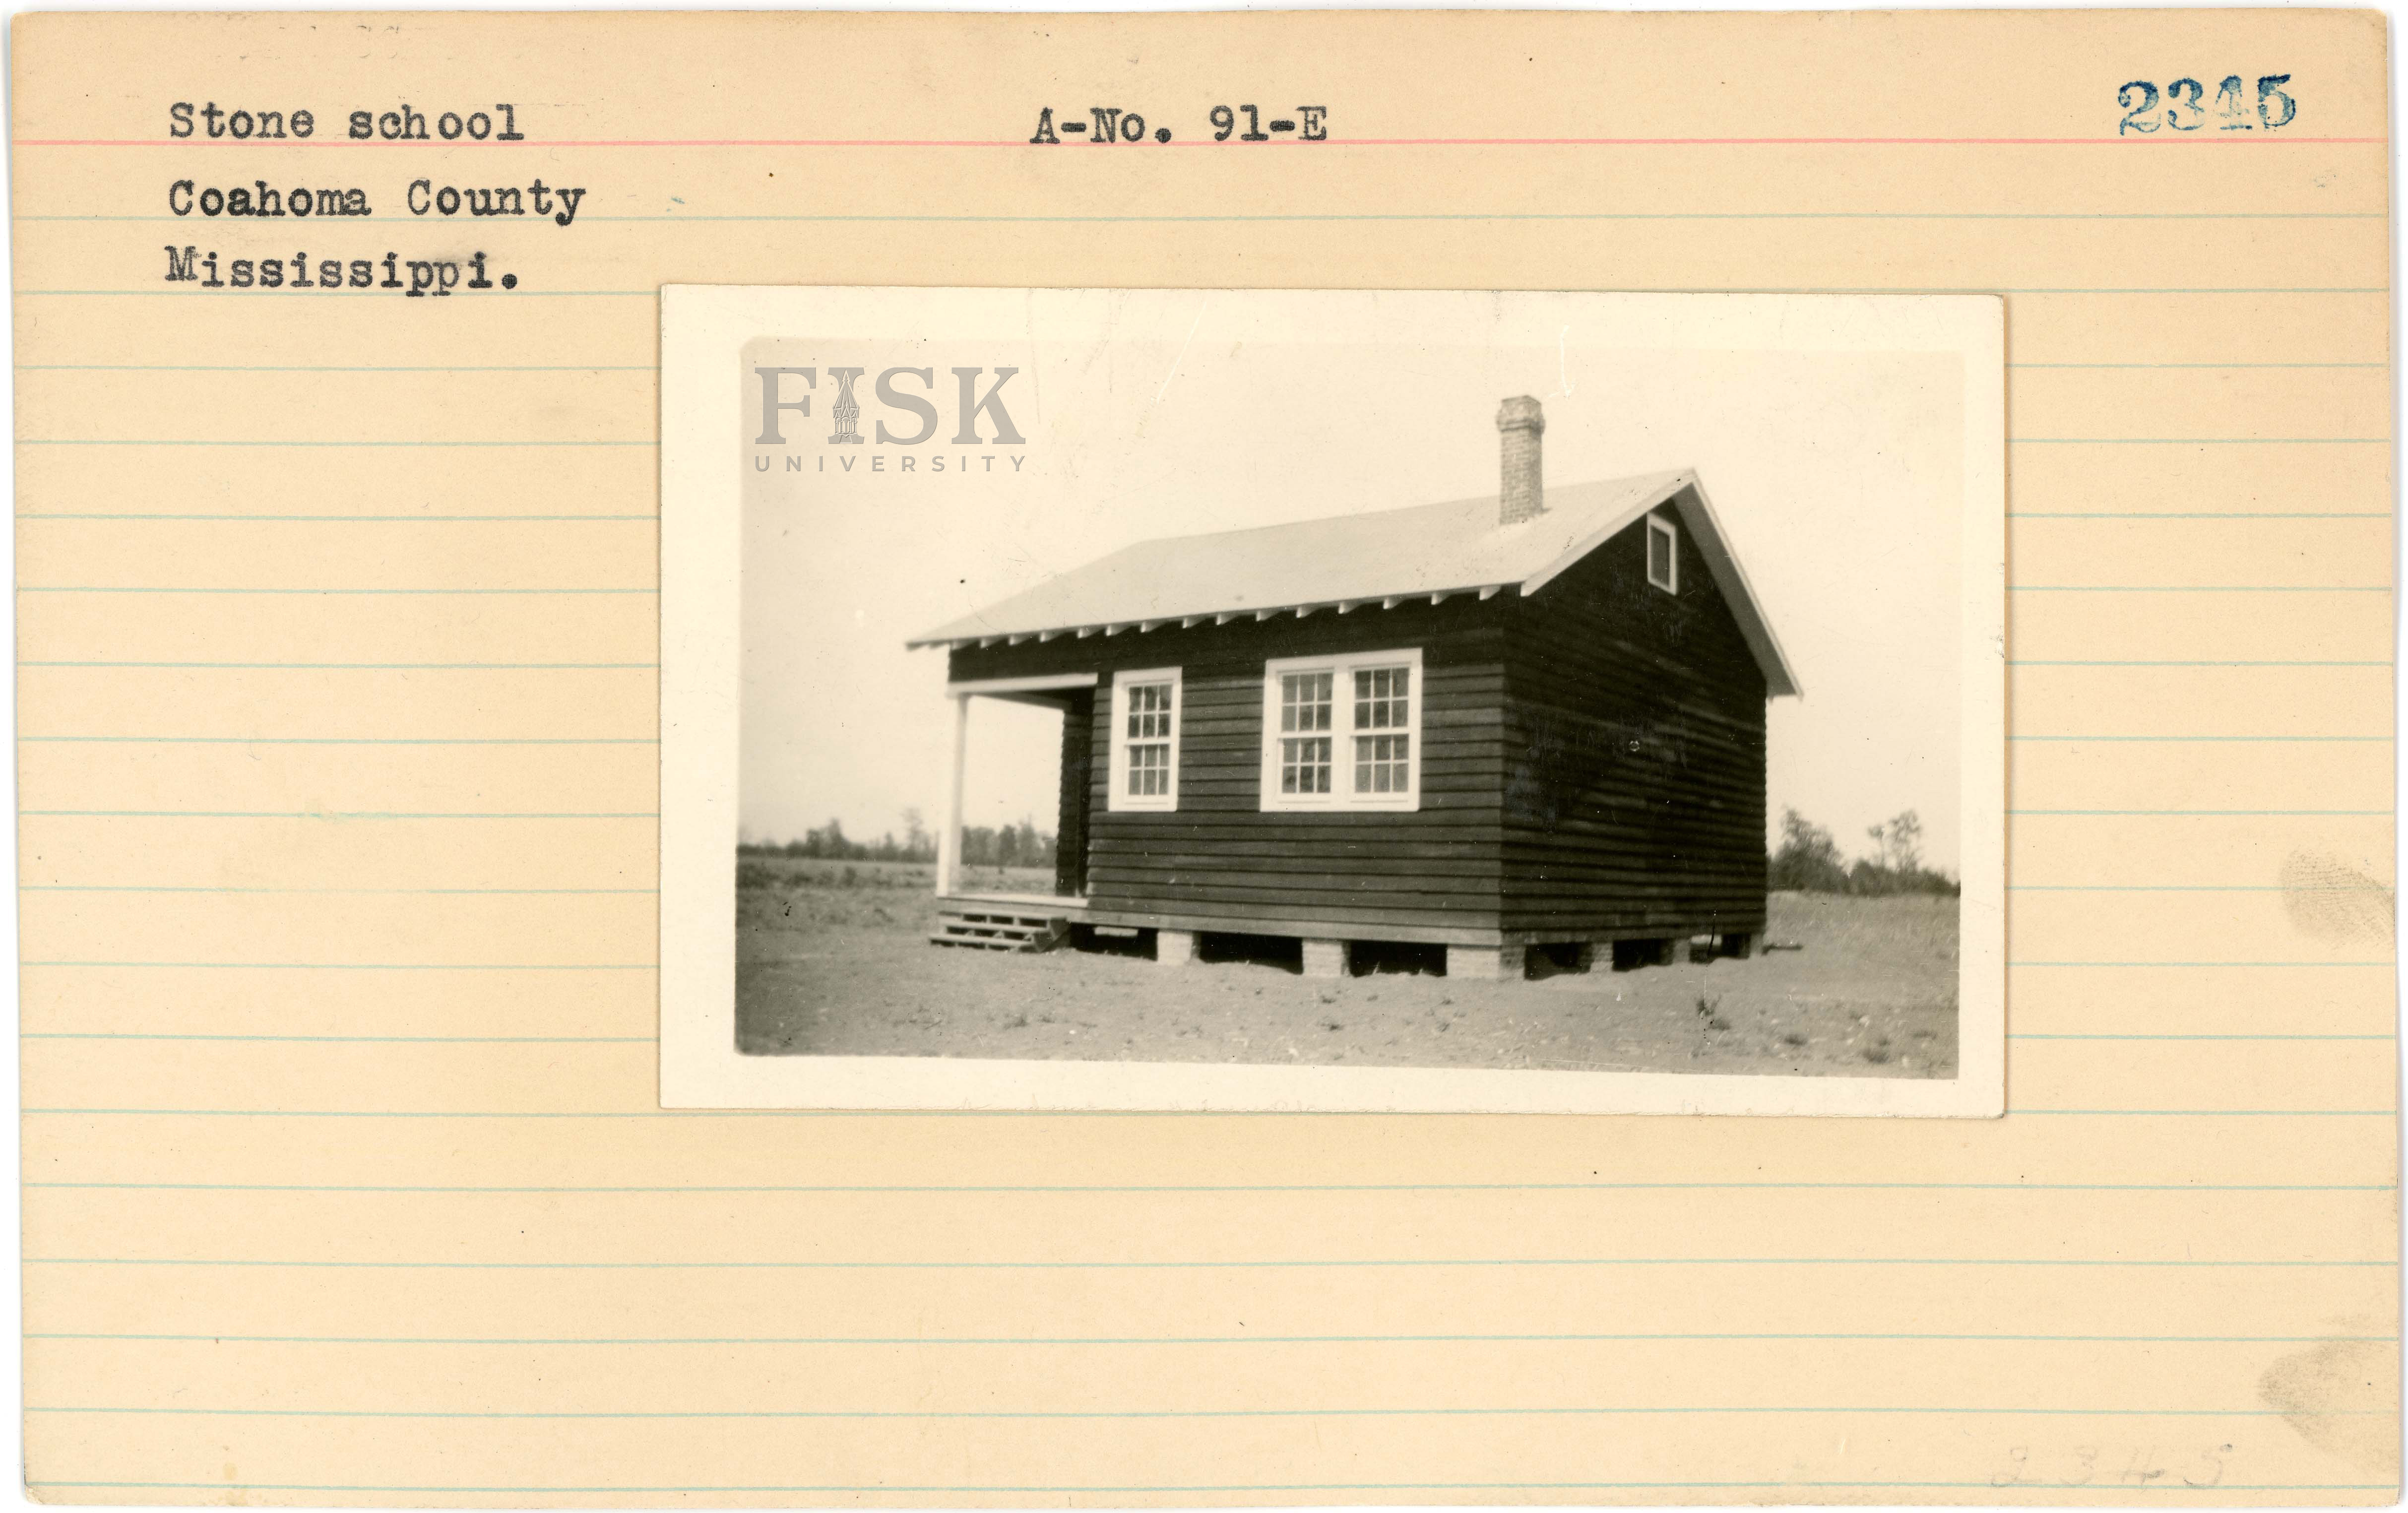 Stone school A-No. 91-E 2345
Coahoma County
Mississippi.
FISK
UNIVERSITY
2345